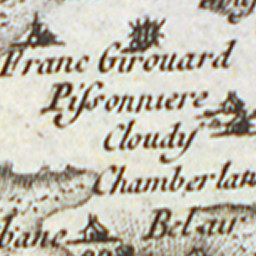 Franc Girouard
Pissonniere
Cloudys
Chamberlan
bane Belair